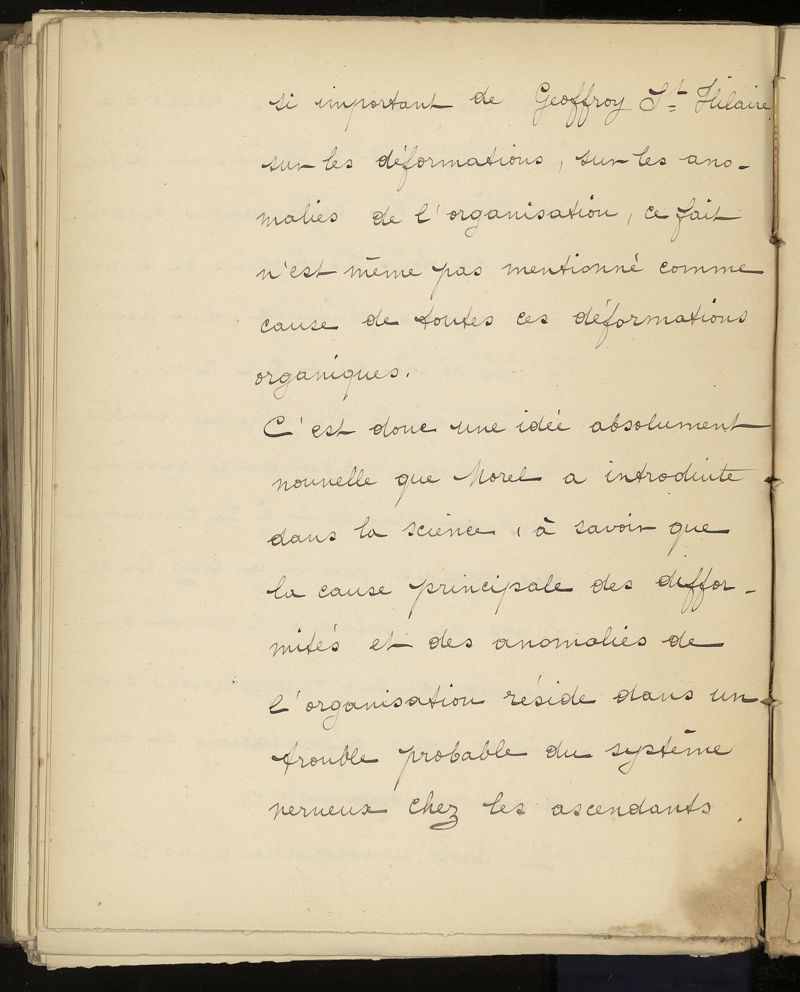 si important de Geoffroy St Hilaire
sur les déformations, sur les ano-
malies de l'organisation, ce fait
n'est même pas mentionné comme
cause de toutes ces déformations
organiques.
C'est donc une idée absolument
nouvelle que Morel a introduite
dans la science, à savoir que
la cause principale des diffor-
mités et des anomalies de
l'organisation réside dans un
trouble probable du système
nerveux chez les ascendants.